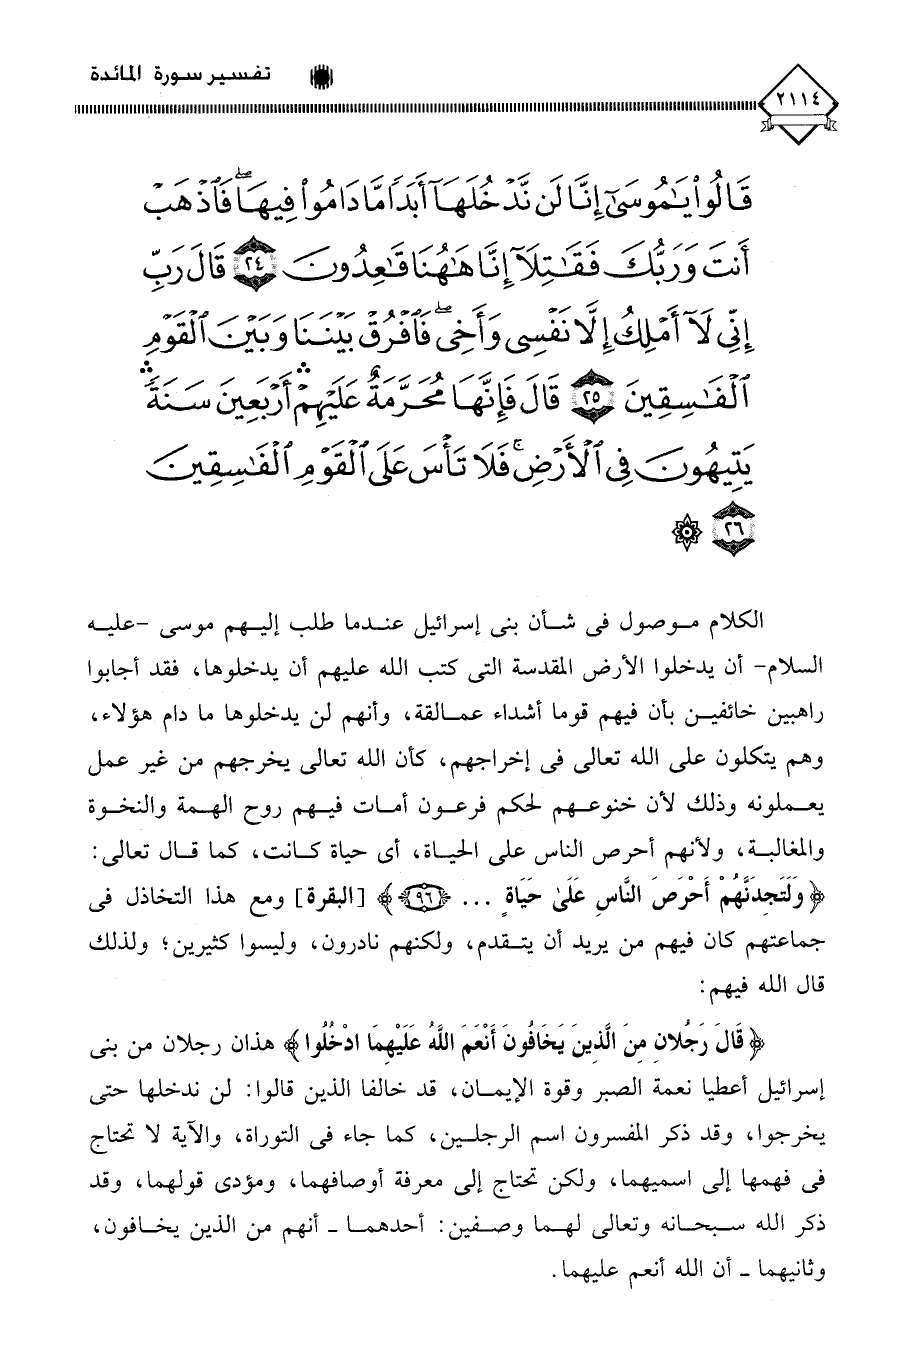 ٢١١٤
تفسير سورة المائدة
قَالُواْ يَٰمُوسَىٰٓ إِنَّا لَن نَّدۡخُلَهَآ أَبَدٗا مَّا دَامُواْ فِيهَا فَٱذۡهَبۡ
أَنتَ وَرَبُّكَ فَقَٰتِلَآ إِنَّا هَٰهُنَا قَٰعِدُونَ ٢٤ قَالَ رَبِّ
إِنِّي لَآ أَمۡلِكُ إِلَّا نَفۡسِي وَأَخِيۖ فَٱفۡرُقۡ بَيۡنَنَا وَبَيۡنَ ٱلۡقَوۡمِ
ٱلۡفَٰسِقِينَ ٢٥ قَالَ فَإِنَّهَا مُحَرَّمَةٌ عَلَيۡهِمۡۛ أَرۡبَعِينَ سَنَةٗۛ
يَتِيهُونَ فِي ٱلۡأَرۡضِۚ فَلَا تَأۡسَ عَلَى ٱلۡقَوۡمِ ٱلۡفَٰسِقِينَ
٢٦
الكلام موصول فى شأن بنى إسرائيل عندما طلب إليهم موسى -عليه
السلام- أن يدخلوا الأرض المقدسة التى كتب الله عليهم أن يدخلوها، فقد أجابوا
راهبين خائفين بأن فيهم قوما أشداء عمالقة، وأنهم لن يدخلوها ما دام هؤلاء،
وهم يتكلون على الله تعالى فى إخراجهم، كأن الله تعالى يخرجهم من غير عمل
يعملونه وذلك لأن خنوعهم لحكم فرعون أمات فيهم روح الهمة والنخوة
والمغالبة، ولأنهم أحرص الناس على الحياة، أى حياة كانت، كما قال تعالى:
﴿وَلَتَجِدَنَّهُمْ أَحْرَصَ النَّاسِ عَلَىٰ حَيَاةٍ ... ٩٦﴾ [البقرة] ومع هذا التخاذل فى
جماعتهم كان فيهم من يريد أن يتقدم، ولكنهم نادرون، وليسوا كثيرين؛ ولذلك
قال الله فيهم:
﴿قَالَ رَجُلانِ مِنَ الَّذِينَ يَخَافُونَ أَنْعَمَ اللَّهُ عَلَيْهِمَا ادْخُلُوا﴾ هذان رجلان من بنى
إسرائيل أعطيا نعمة الصبر وقوة الإيمان، قد خالفا الذين قالوا: لن ندخلها حتى
يخرجوا، وقد ذكر المفسرون اسم الرجلين، كما جاء فى التوراة، والآية لا تحتاج
فى فهمها إلى اسميهما، ولكن تحتاج إلى معرفة أوصافهما، ومؤدى قولهما، وقد
ذكر الله سبحانه وتعالى لهما وصفين: أحدهما ـ أنهم من الذين يخافون،
وثانيهما ـ أن الله أنعم عليهما.